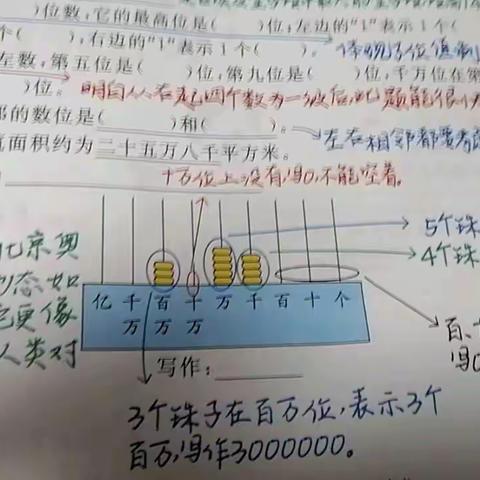 )位数,它的最高位是(　　)位;左边的"1"表示1个(
个(　　),右边的"1"表示1个(　　)。
左数,第五位是(　　)位,第九位是(　　)位,千万位在第
)位。 明白从右起四个数为一级后此题能很
的数位是(　　)和(　　)。 左右相邻都要考
面积约为二十五万八千平方米。
十万位上没有,写0,不能空着。
5个珠
4个珠
北京奥
态如
更像
人类对
亿 千万 百万 十万 万 千 百 十 个
百、
写0
写作:
3个珠子在百万位,表示3个
百万,写作3000000。